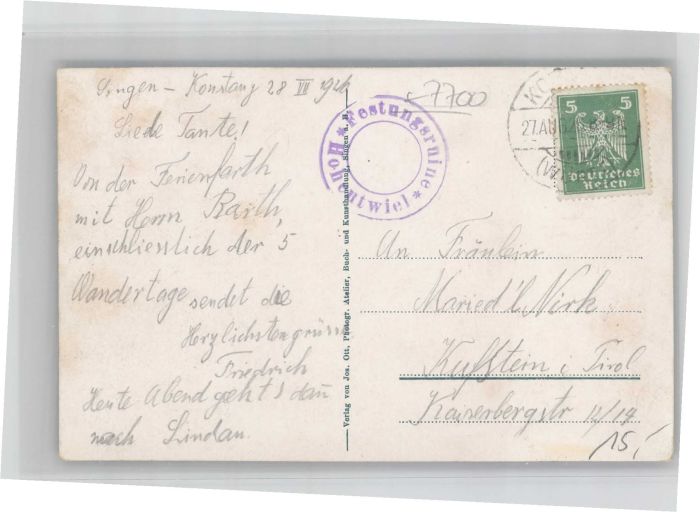 Singen – Konstanz 28 VII 1926
Liebe Tante!
Von der Ferienfarth
mit Herrn Rarth,
einschliesslich der 5
Wandertage sendet die
Herzlichsten grüsse
Friedrich
Heute Abend geht's dann
nach Lindau.
* Festungsruine *
Hohentwiel
Verlag von Jos. Ott, Photogr. Atelier, Buch- und Kunsthandlung, Singen a. H.
7700
27.AUG.
5 5
Deutsches
Reich
An Fräulein
Kufstein i Tirol
Kaiserbergstr 12/14
15,-